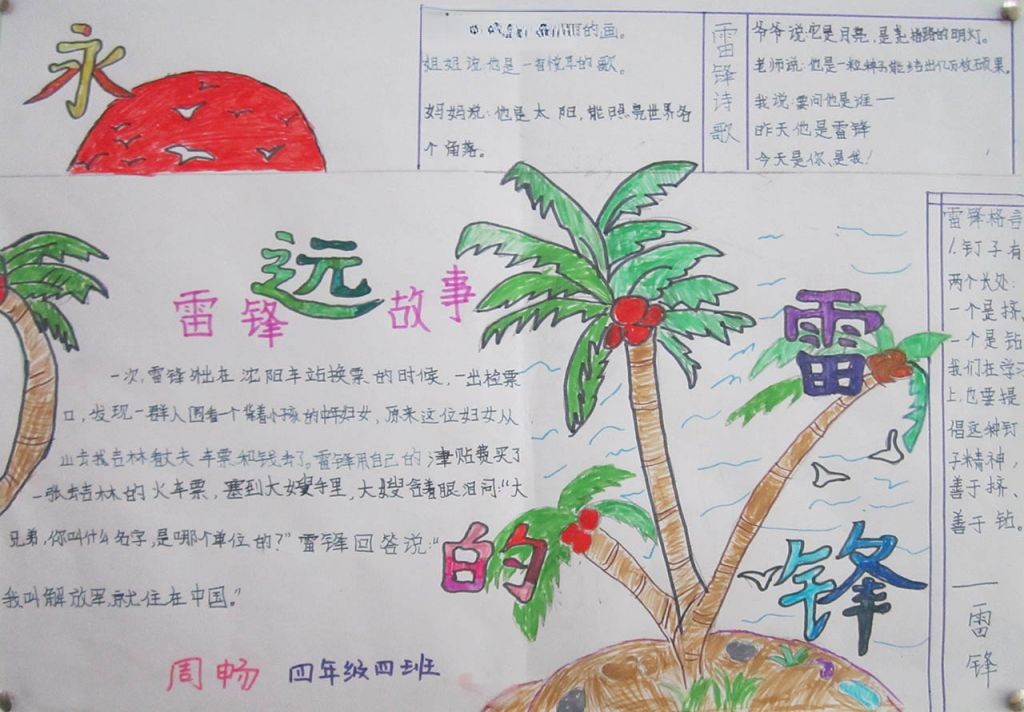 永
远
的
雷
锋
的画。
姐姐说:他是一首悦耳的歌。
妈妈说:他是太阳,能照亮世界各
个角落。
雷锋诗歌
爷爷说:它是月亮,是羌塘路的明灯。
老师说:他是一粒种子能结出亿万枚硕果。
我说:要问他是谁一
昨天他是雷锋
今天是你,是我!
雷锋故事
一次,雷锋外出在沈阳车站换票的时候,一出检票
口,发现一群人围着一个背着小孩的中年妇女,原来这位妇女从
山去我吉林看丈夫车票和钱丢了。雷锋用自己的津贴费买了
一张去吉林的火车票,塞到大嫂手里,大嫂含着眼泪问:“大
兄弟,你叫什么名字,是哪个单位的?”雷锋回答说:“
我叫解放军,就住在中国。”
周畅 四年级四班
雷锋格言
1.钉子有
两个长处:
一个是挤,
一个是钻
我们在学习
上,也要提
倡这种钉
子精神,
善于挤、
善于钻。
—雷锋